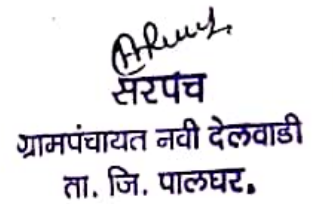 सरपंच
ग्रामपंचायत नवी देलवाडी
ता. जि. पालघर.